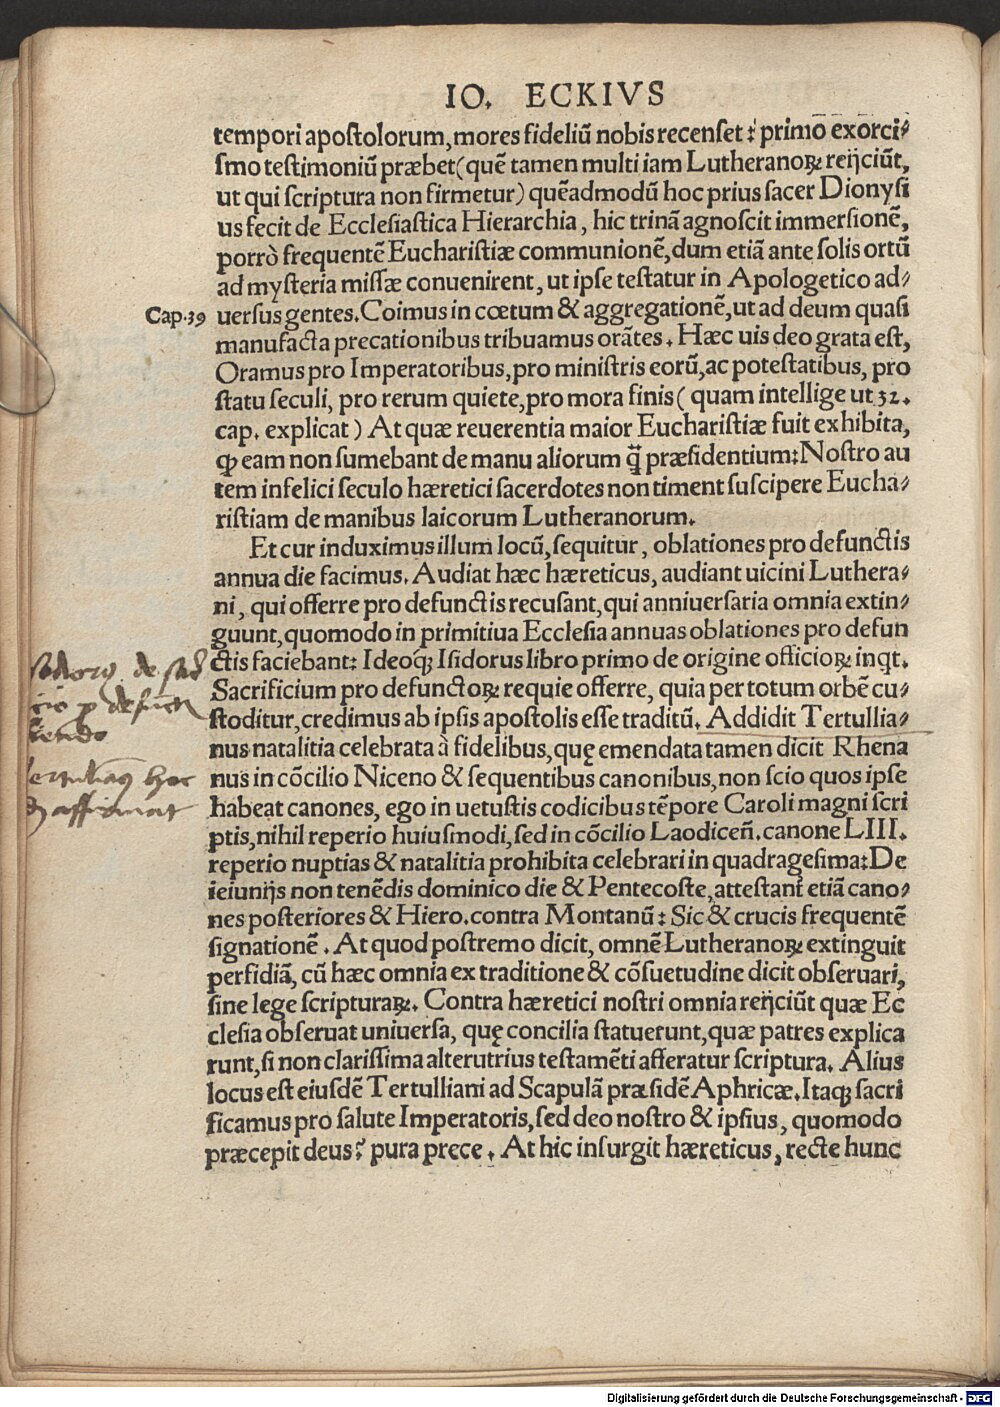 IO. ECKIVS
tempori apostolorum, mores fideliũ nobis recenset: primo exorci⸗
smo testimoniũ præbet (quẽ tamen multi iam Lutheranoꝝ reijciũt,
ut qui scriptura non firmetur) quẽadmodũ hoc prius sacer Dionysi
us fecit de Ecclesiastica Hierarchia, hic trinã agnoscit immersionẽ,
porrò frequentẽ Eucharistiæ communionẽ, dum etiã ante solis ortũ
ad mysteria missæ conuenirent, ut ipse testatur in Apologetico ad⸗
Cap.39 uersus gentes. Coimus in cœtum & aggregationẽ, ut ad deum quasi
manufacta precationibus tribuamus orãtes. Hæc uis deo grata est,
Oramus pro Imperatoribus, pro ministris eorũ, ac potestatibus, pro
statu seculi, pro rerum quiete, pro mora finis (quam intellige ut 32.
cap. explicat) At quæ reuerentia maior Eucharistiæ fuit exhibita,
ꝙ eam non sumebant de manu aliorum q̃̃ præsidentium: Nostro au
tem infelici seculo hæretici sacerdotes non timent suscipere Eucha⸗
ristiam de manibus laicorum Lutheranorum.
Et cur induximus illum locũ, sequitur, oblationes pro defunctis
annua die facimus. Audiat hæc hæreticus, audiant uicini Luthera⸗
ni, qui offerre pro defunctis recusant, qui anniuersaria omnia extin⸗
guunt, quomodo in primitiua Ecclesia annuas oblationes pro defun
ctis faciebant: Ideoq́ꝫ Isidorus libro primo de origine officioꝝ inqt.
Sacrificium pro defunctoꝝ requie offerre, quia per totum orbẽ cu⸗
stoditur, credimus ab ipsis apostolis esse traditũ. Addidit Tertullia⸗
nus natalitia celebrata à fidelibus, quę emendata tamen dicit Rhena
nus in cõcilio Niceno & sequentibus canonibus, non scio quos ipse
habeat canones, ego in uetustis codicibus tẽpore Caroli magni scri
ptis, nihil reperio huiusmodi, sed in cõcilio Laodiceñ. canone LIII.
reperio nuptias & natalitia prohibita celebrari in quadragesima: De
ieiunijs non tenẽdis dominico die & Pentecoste, attestant etiã cano⸗
nes posteriores & Hiero. contra Montanũ: Sic & crucis frequentẽ
signationẽ. At quod postremo dicit, omnẽ Lutheranoꝝ extinguit
perfidiã, cũ hæc omnia ex traditione & cõsuetudine dicit obseruari,
sine lege scripturaꝝ. Contra hæretici nostri omnia reijciũt quæ Ec
clesia obseruat uniuersa, quę concilia statuerunt, quæ patres explica
runt, si non clarissima alterutrius testamẽti afferatur scriptura. Alius
locus est eiusdẽ Tertulliani ad Scapulã præsidẽ Aphricæ. Itaqꝫ sacri
ficamus pro salute Imperatoris, sed deo nostro & ipsius, quomodo
præcepit deus? pura prece. At hic insurgit hæreticus, recte hunc
de
hoc
affirmat
Digitalisierung gefördert durch die Deutsche Forschungsgemeinschaft - DFG